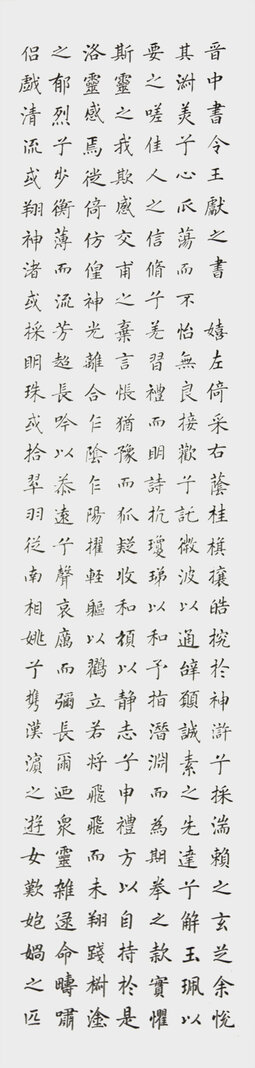 晉中書令王獻之書 嬉左倚采右蔭桂棋攘皓捥於神滸兮採湍瀨之玄芝余悅
其淑美兮心爪蕩而不怡無良接歡兮託微波以通辝願誠素之先達兮解玉珮以
要之嗟佳人之信脩兮羌習禮而明詩抗瓊珶以和予指潛淵而為期拳之款實懼
斯靈之我欺感交甫之棄言悵猶豫而狐疑收和顏以静志兮申禮方以自持於是
洛靈感焉徙倚仿偟神光離合乍陰乍陽擢軽軀以鶴立若將飛飛而未翔踐樹塗
之郁烈兮步衡薄而流芳超長吟以慕遠兮聲哀厲而彌長爾迺衆靈雜遝命疇嘯
侶戲清流或翔神渚或採明珠或拾翠羽從南相姚兮攜漢濱之遊女歎匏媧之匹